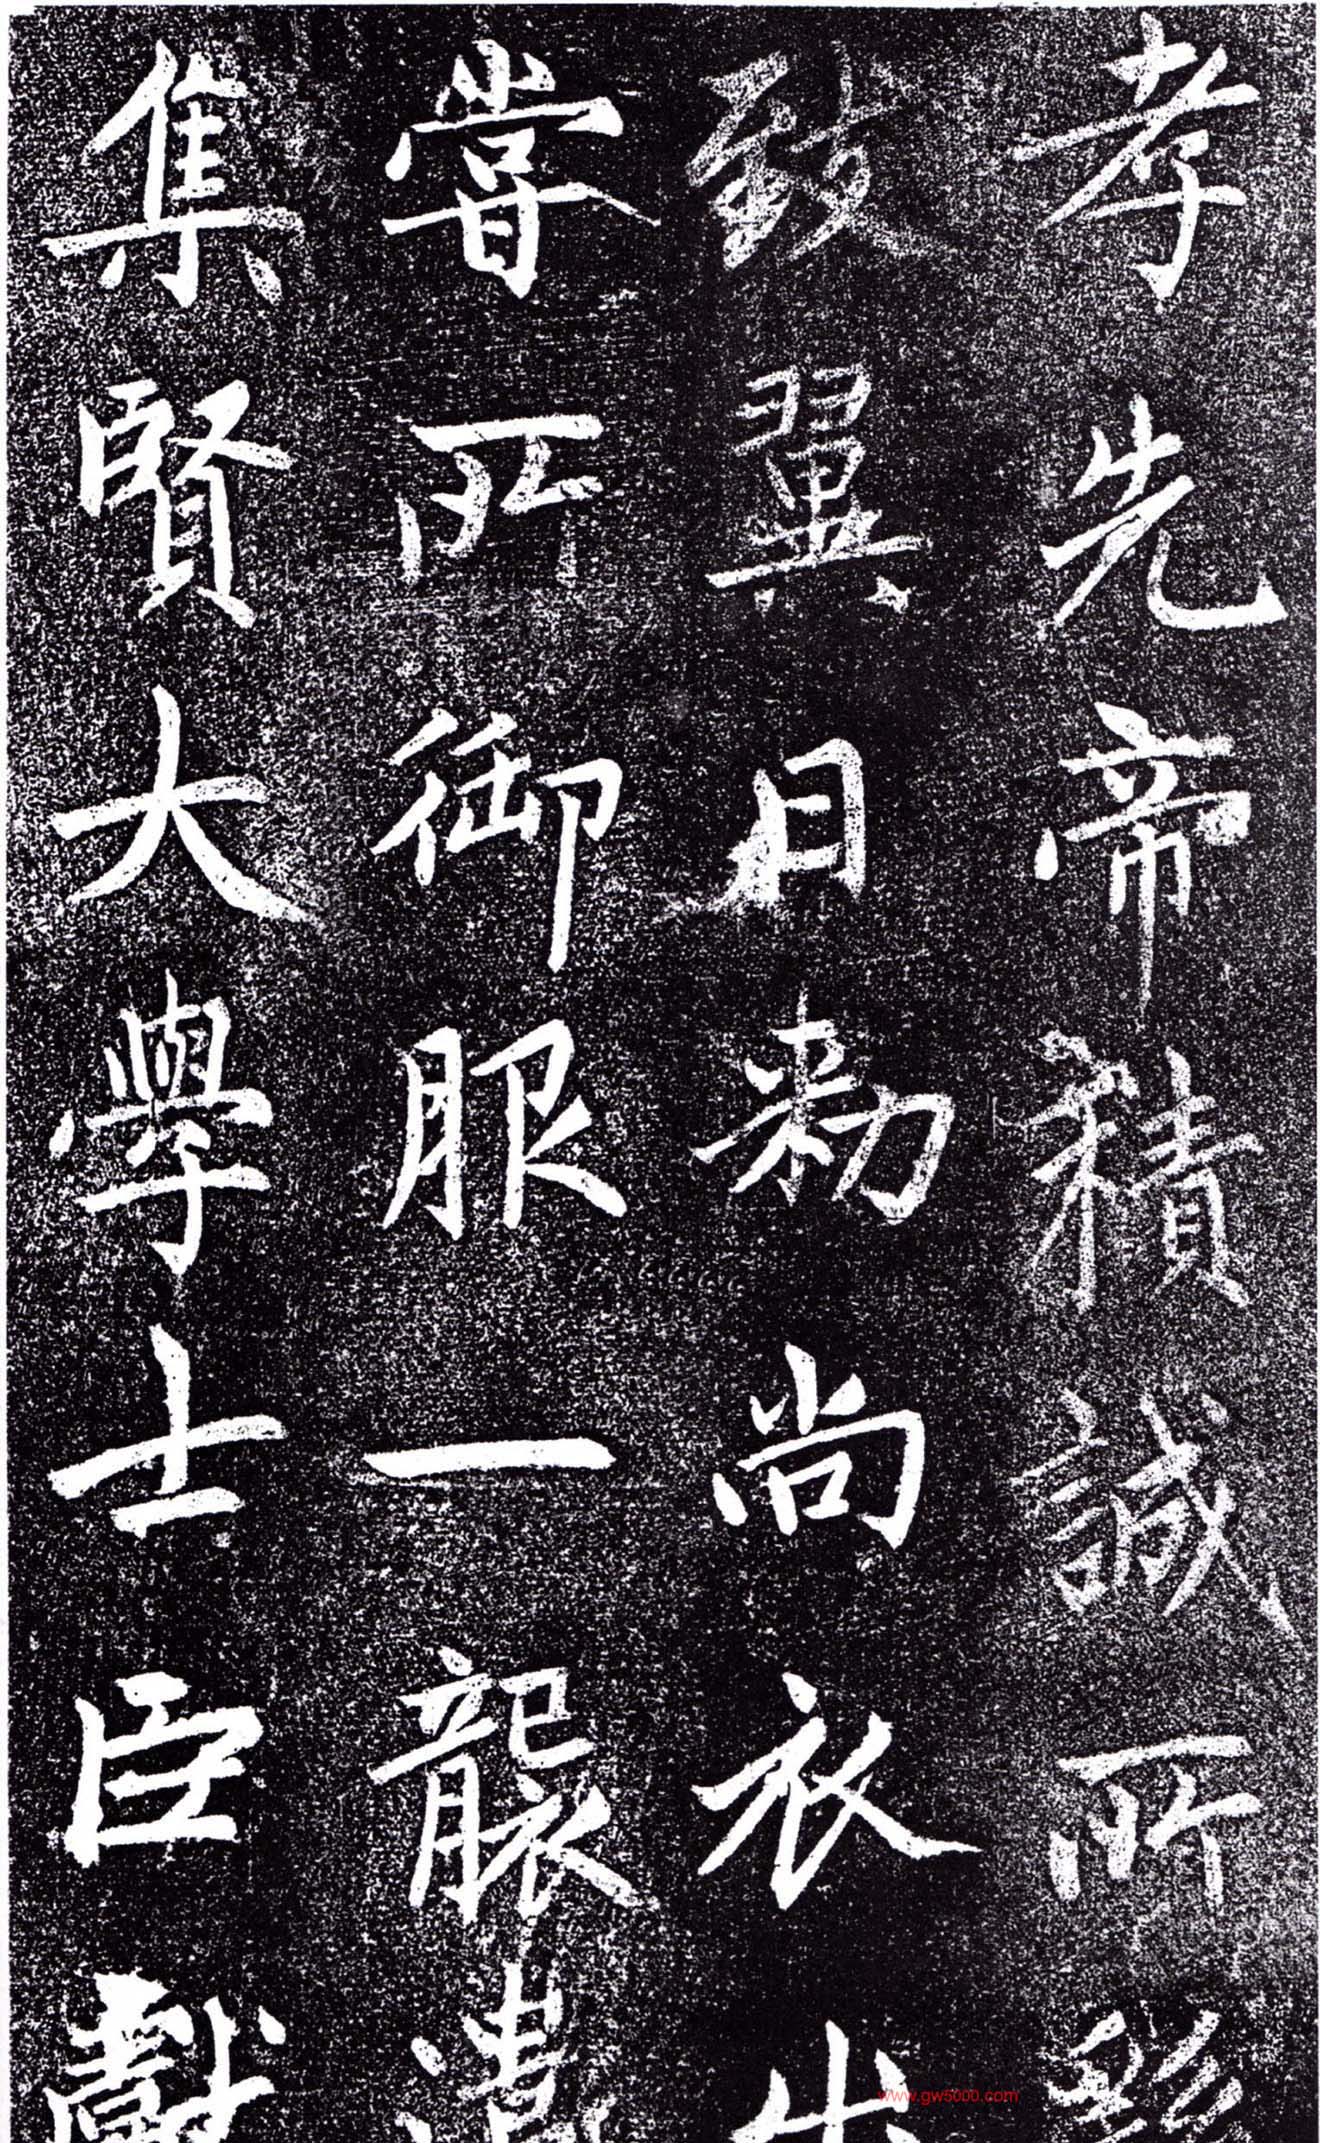 孝先帝積誠所
致翼日勑尚衣出
嘗所御服一襲遣
集賢大學士臣獻
www.gw5000.com